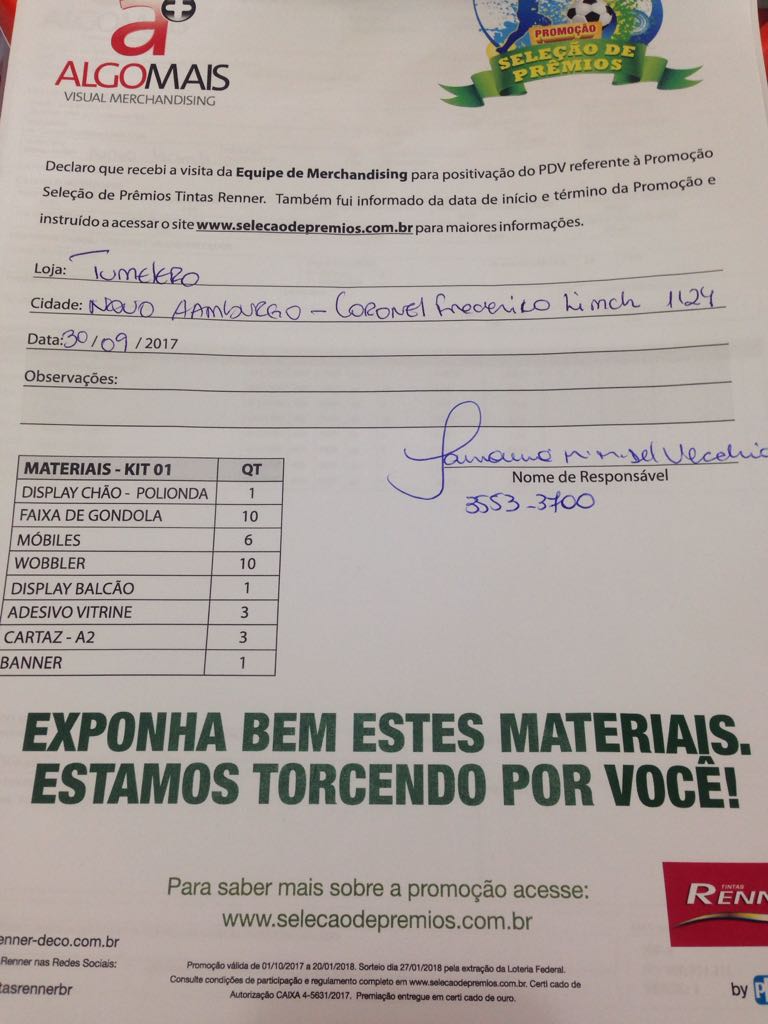 ALGOMAIS
VISUAL MERCHANDISING
PROMOÇÃO
SELEÇÃO DE
PRÊMIOS
Declaro que recebi a visita da Equipe de Merchandising para positivação do PDV referente à Promoção
Seleção de Prêmios Tintas Renner. Também fui informado da data de início e término da Promoção e
instruído a acessar o site www.selecaodepremios.com.br para maiores informações.
Loja: TUMELERO
Cidade: NOVO HAMBURGO - CORONEL Frederico Linck 1124
Data: 30/09/2017
Observações:
Nome de Responsável
3553-3700
MATERIAIS - KIT 01 QT
DISPLAY CHÃO - POLIONDA 1
FAIXA DE GONDOLA 10
MÓBILES 6
WOBBLER 10
DISPLAY BALCÃO 1
ADESIVO VITRINE 3
CARTAZ - A2 3
BANNER 1
EXPONHA BEM ESTES MATERIAIS.
ESTAMOS TORCENDO POR VOCÊ!
Para saber mais sobre a promoção acesse:
www.selecaodepremios.com.br
TINTAS
RENN
enner-deco.com.br
Renner nas Redes Sociais:
tasrennerbr
Promoção válida de 01/10/2017 a 20/01/2018. Sorteio dia 27/01/2018 pela extração da Loteria Federal.
Consulte condições de participação e regulamento completo em www.selecaodepremios.com.br. Certi cado de
Autorização CAIXA 4-5631/2017. Premiação entregue em certi cado de ouro.
by